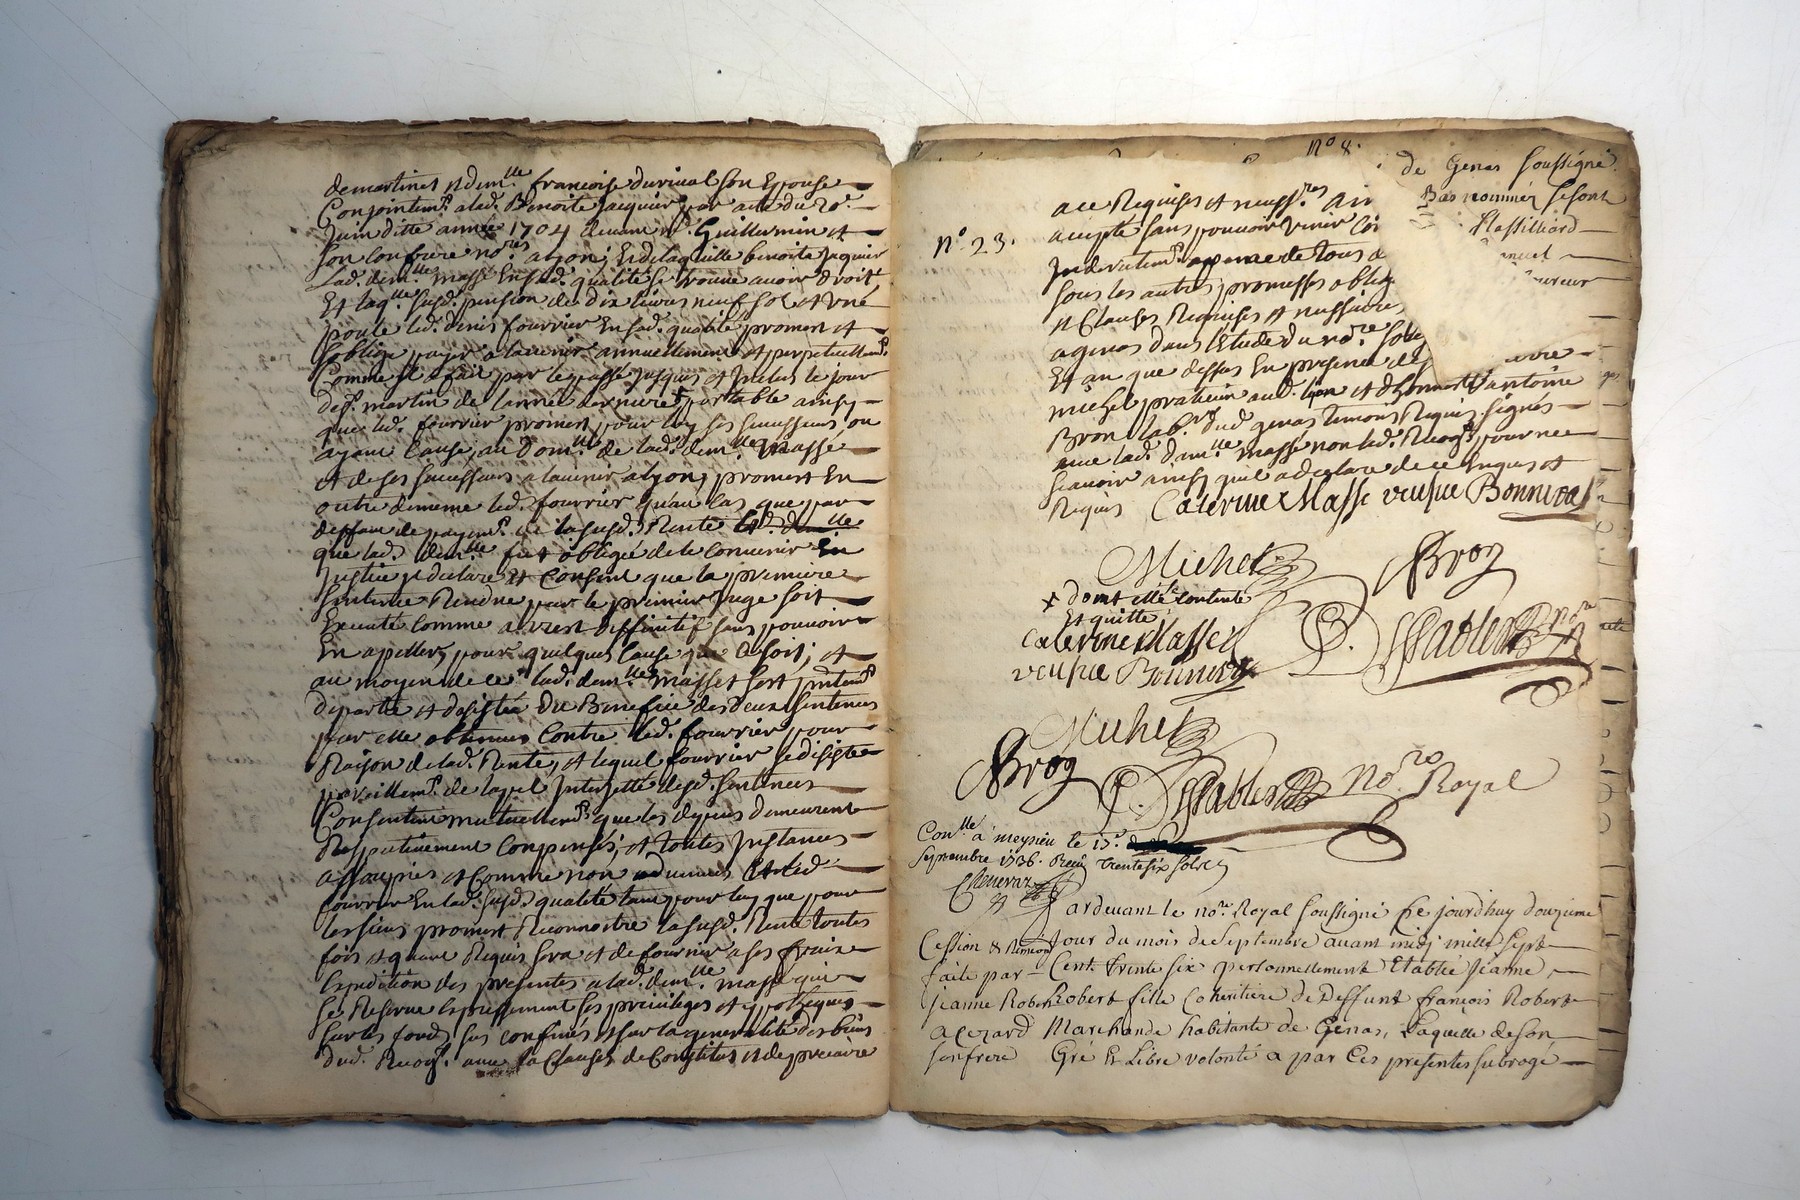 demartinet et dem.lle francoise durival son Epouse
Conjointem.t a lad. Benoite Jacquier par acte du 20.e
Juin ditte année 1704 devant m.e Guillermin et
son confrere no.res a lyon, En delaquelle benoite Jaquier
Lad. dem.lle massé En sad. qualité se trouve avoir droit
Et laq.lle susd. pension de dix livres neuf sol et une
poule led. denis fourrier En sad. qualité promet et
soblige payer a lavenir annuellement et perpetuellem.t
Comme Il a fait par le passé jusques et Inclus le jour
de s.t martin de lannée derniere portable ainsy
que led. fourrier promet pour luy ses successeurs ou
ayant Cause, au Dom.lle de lad. dem.lle Massé
et de ses successeurs a lavenir a lyon, promet En
outre demême led. fourrier qu'au Cas que par
deffaut de payem.t de la susd. Rente
que lad. dem.lle fut obligée de le Convenir En
Justice Il declare Et Consent que la premiere
Sentence Rendue par le premier Juge soit
Executé Comme arrest deffinitif sans pouvoir
En apeller, pour quelques Cause que Ce soit; et
au moyen de ce lad. dem.lle Masse s'est
departie et desistée Du Benefice des deux sentences
par elle obtenues Contre led. fourrier pour
Raison de lad. Rente, et lequel fourrier se desiste
pareillem.t de lapel Interjetté desd. sentences
Consentent mutuellem.t que les depens demeurent
Respectivement Compensés, et toutes Instances
assoupies et Comme non advenues Et led.
fourrier En lad. susd. qualité tant pour luy que pour
les siens promet Reconnoitre la susd. Rente toutes
fois et quand Requis sera et de fournir a ses fraix
Expedition des presentes a lad. dem.lle masse que
se Reserve Expressement ses privileges et ypotheques
sur les fonds sus confinés et sur la generalité des biens
dud. Recog.t avec la Clauses de Constitut et de precaire
n.o 8.
de Genas soussigné
Bas nommés se sont
N.o 23.
ace Requises et necess.res
accepté sans pouvoir venir
Indirectem.t a peine de tous
sous les autres promesses
et Clauses Requises et necessaires
a genas dans l'Etude du no.re
Et an que dessus En presence de
michel praticien aud. lyon et d'honnor.ble antoine
Bron lab.r dud. genas temoins Requis signés
avec lad. dam.lle Massé non led. Recog.t pour ne
scavoir ainsy quil a declaré de ce Enquis et
Requis Caterine Masse veufue Bonnival
Michel Broy
x dont elle contente
Et quitte
Caterine Masse
veufue Bonnival
Michel
Broy no.re Royal
Con.lle a meysieu le 15.e
Septembre 1736. Reçu trente six sols
Chenevaz
Pardevant le no.re Royal soussigné Ce jourdhuy douzieme
Jour du mois de Septembre avant midj mille sept
Cession &
faite par Cent trente six personnellement Etablie Jeanne
Jeanne Robert Robert fille Coheritiere de Deffunt françois Robert
a Cezard Marchande habitante de Genas, Laquelle de son
son frere Gré Et Libre volonté a par Ces presentes subrogé